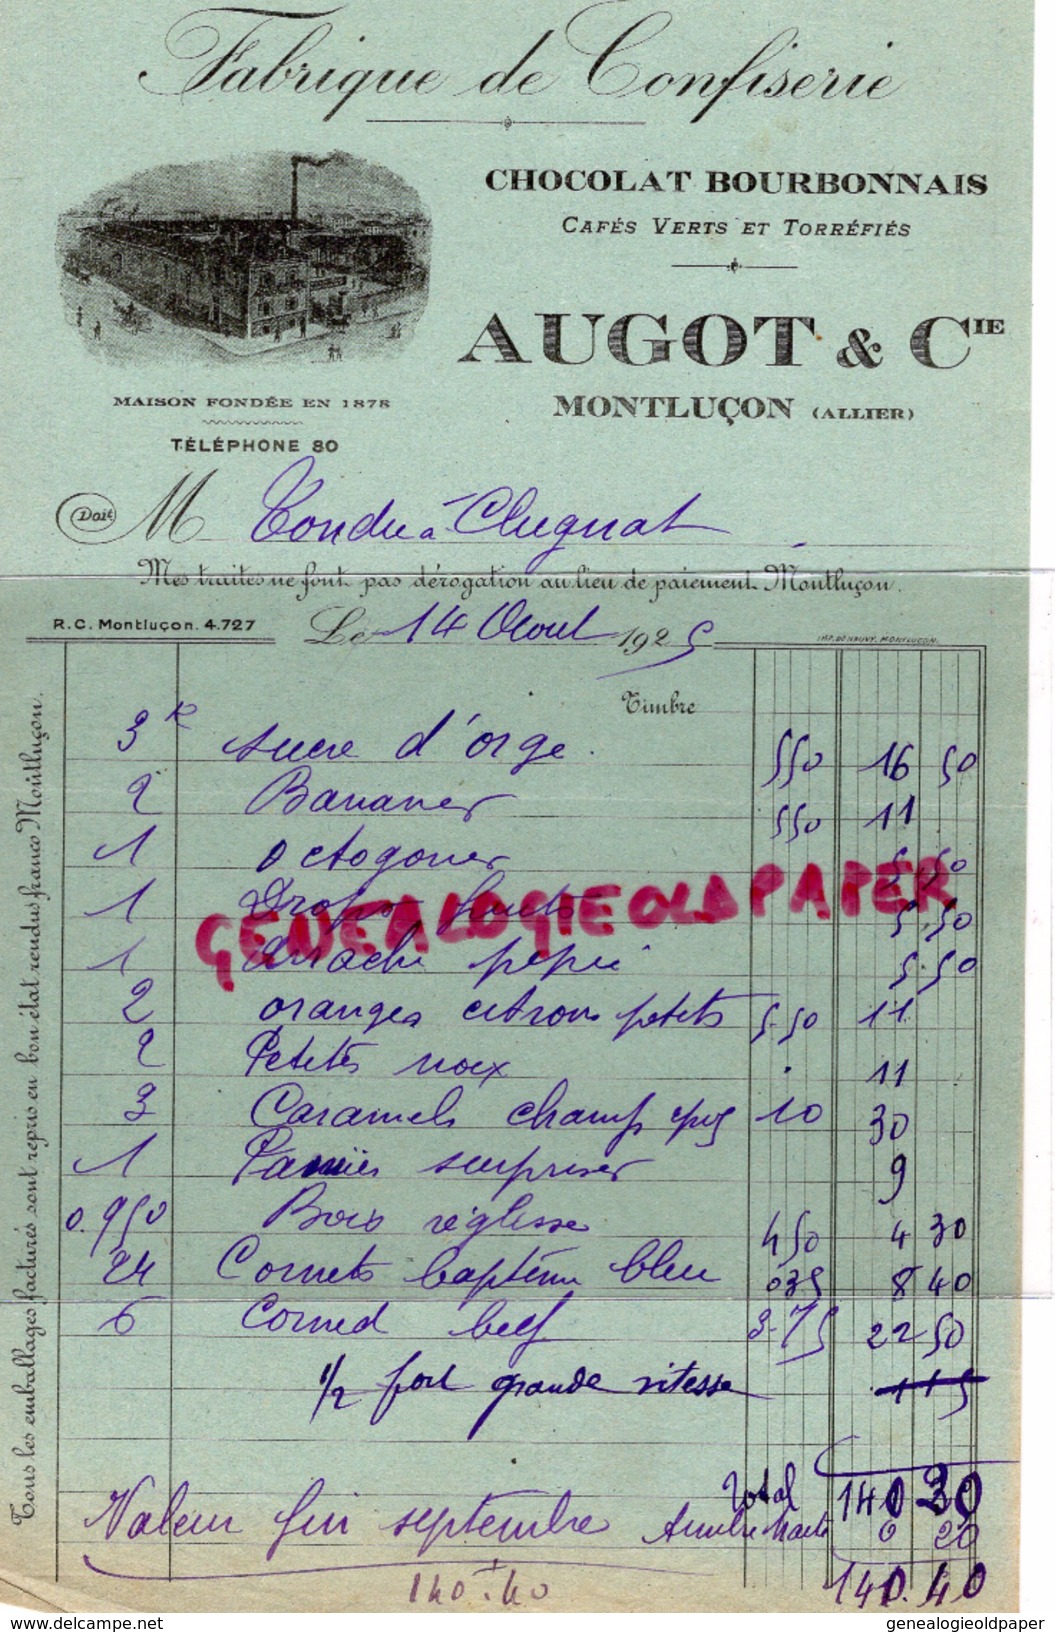 Fabrique de Confiserie
CHOCOLAT BOURBONNAIS
CAFÉS VERTS ET TORRÉFIÉS
AUGOT & CIE
MONTLUÇON (ALLIER)
MAISON FONDÉE EN 1878
TÉLÉPHONE 80
Doit M Tondu à Clugnat
Mes traites ne font pas dérogation au lieu de paiement Montluçon.
R.C. Montluçon. 4.727
Le 14 Aout 1925
Timbre
Tous les emballages facturés sont repris en bon état rendus franco Montluçon.
3 k sucre d'orge. 550 16 50
2 Bananes 550 11
1 octogones 5,50
1 Drops fruits 5,50
GENEALOGIEOLDPAPER
1 5.50
2 oranges citrons petits 5.50 11
2 Petites noix . 11
3 Caramels champ 10 30
1 Paniers surprises 9
0.950 Bois réglisse 450 4 30
24 Cornets baptême bleu 035 8 40
6 Corned beef 3.75 22 50
1/2 port grande vitesse 115
Total 140 30
Valeur fin septembre 0 20
141.40
140.40
genealogieoldpaper
www.delcampe.net